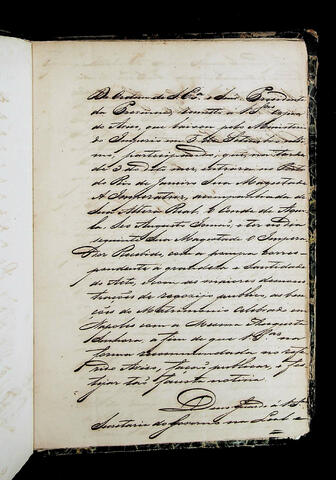 De Ordem de S. Exª o Snr. Presidente
da Provincia, remetto a VSª copia
do Aviso, que baixou pelo Ministerio
do Imperio em 5 de Setembro ulti-
mo, participando, que, na tarde
de 3 do dito mez, entrara no Porto
do Rio de Janeiro Sua Magestade
A Imperatriz, acompanhada de
Seu Alteza Real, O Conde de Aqui-
la, Seu Augusto Irmaõ, e ter no dia
seguinte Sua Magestade O Impera-
dor Recebido, com a pompa corres-
pondente á grandeza e Santidade
do Acto, e com as maiores demons-
traçoes de regosijo publico, as ben-
çaõs do Matrimonio Celebrado em
Napoles com a Mesma Augusta
Senhora, a fim de que VSª, na
forma recommendada no refe-
rido Aviso, faça publicar, e fes-
tejar taõ fausta noticia.
Deos Guarde a VSª
Secretaria do Governo na